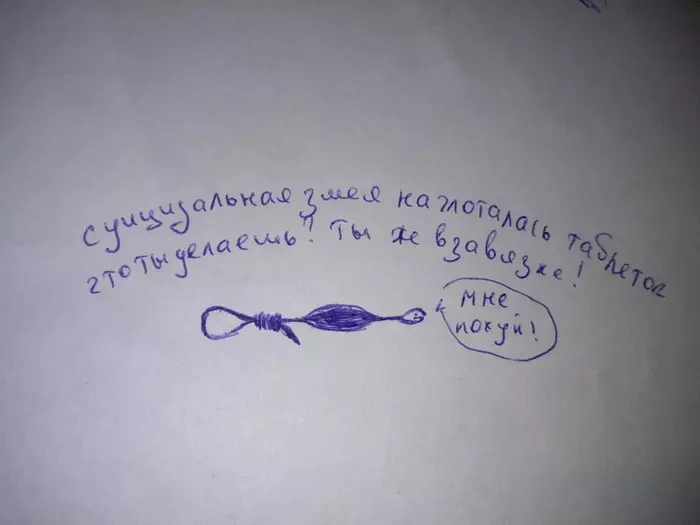 суицидальная змея наглоталась таблеток
что ты делаешь? ты же в завязке!
мне
похуй!